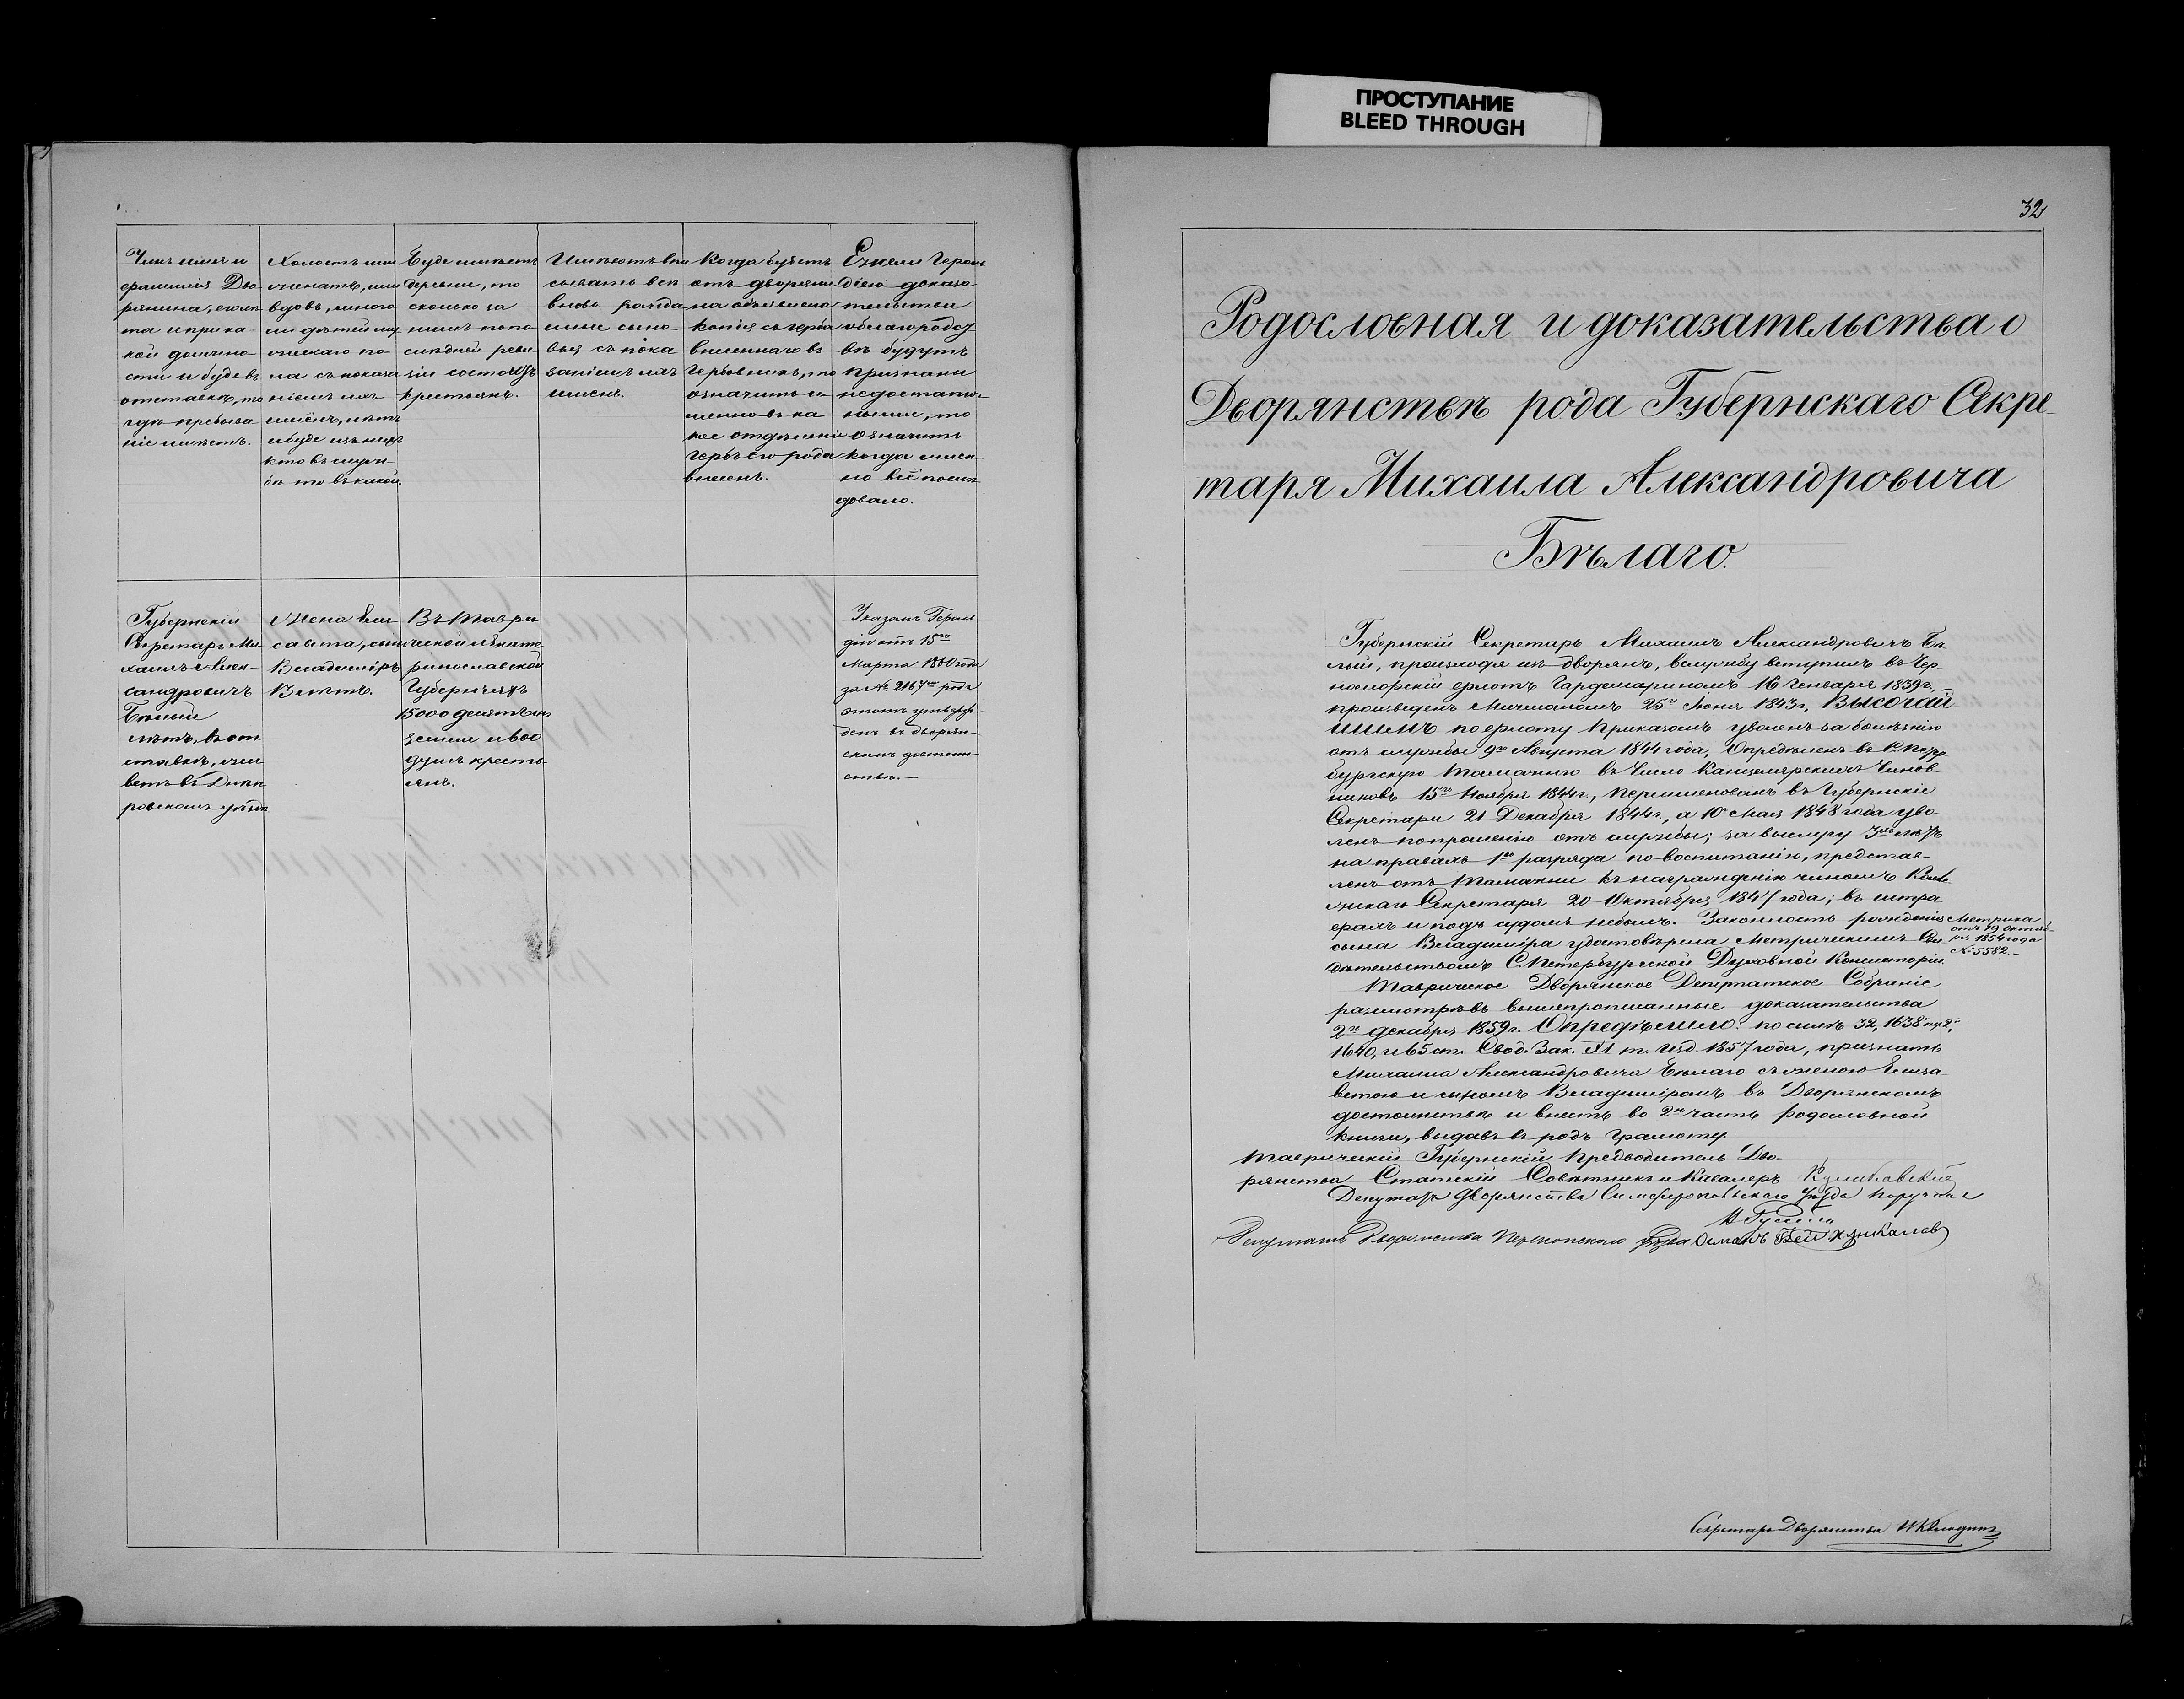 ПРОСТУПАНИЕ
BLEED THROUGH
Чинъ имя и
фамилія Дво-
рянина, его лѣ-
та и при ка-
кой должно-
сти и буде въ
отставкѣ, то
гдѣ пребыва-
ніе имѣетъ.
Холостъ или
женатъ, или
вдовъ, много
ли дѣтей му-
жескаго по-
ла съ показа
ніемъ ихъ
имёнъ, лѣтъ
и буде изъ нихъ
кто въ служ-
бѣ то въ какой.
Буде имѣетъ
деревни, то
сколько за
нимъ по по-
слѣдней реви-
зіи состоитъ
крестьянъ.
Имѣютъ впи
сывать всѣ
вновь рожда
емые сыно-
вья съ пока
заніемъ ихъ
имёнъ.
Когда будетъ
отъ дворяни
на объявлена
копія съ герба
внесеннаго въ
Гербовникъ, то
означить и
менно въ ка
кое отдѣленіе
гербъ его рода
внесенъ.
Ежели Героль
діею доказа
тельства
о благородст
вѣ будутъ
признаны
недостаточ
ными, то
означить
когда имен-
но всё послѣ
довало.
Губернскій
Секретарь Ми
хаилъ Алек-
сандровичъ
Бѣлый
лѣтъ, въ от
ставкѣ, жи
ветъ въ Днѣп
ровскомъ уѣздѣ
Жена Ели
савета, сынъ
Владиміръ
лѣтъ.
Въ Таври
ческой и Екате
ринославской
Губерніяхъ
15000 десятинъ
земли и 600
душъ кресть
янъ.
Указомъ Героль
діи отъ 15го
Марта 1860 года
за № 2167мъ родъ
этотъ утверж-
денъ въ дворян-
скомъ достоин-
ствѣ.–
32
Родословная и доказательства о
Дворянствѣ рода Губернскаго Секре-
таря Михаила Александровича
Бѣлаго.
Губернскій Секретарь Михаилъ Александровичъ Бѣ-
лый, происходя изъ дворянъ, въ службу вступилъ въ Чер-
номорскій флотъ Гардемариномъ 16 Генваря 1839 г.,
произведенъ Мичманомъ 25го Іюня 1843 г, Высочай
шимъ по флоту Приказомъ уволенъ за болѣзнію
отъ службы 9го Августа 1844 года, Опредѣленъ въ С. Петер
бургскую Таможню въ Число Канцелярскихъ Чинов-
никовъ 15го Ноября 1844 г., переименованъ въ Губернскіе
Секретари 21 Декабря 1844 г., а 10 Мая 1848 года уво-
ленъ по прошенію отъ службы; за выслугу 3хъ лѣтъ
на правахъ 1го разряда по воспитанію, представ-
ленъ отъ Таможни къ награжденію чиномъ Колле-
жскаго Секретаря 20 Октября 1847 года; въ штра
фахъ и подъ судомъ небылъ. Законность рожденія
сына Владиміра удостовѣрена Метрическимъ Сви
дѣтельствомъ С. Петербургской Духовной Консисторіи.
Метрика
отъ 19 Октяб-
ря 1854 года
№ 5582.–
Таврическое Дворянское Депутатское Собраніе
разсмотрѣвъ вышепрописанные доказательства
2го декабря 1859 г. Опредѣлило: по силѣ 32, 1638 п. 2.,
1640, и 65 ст. Свод. Зак. IX т. изд. 1857 года, признать
Михаила Александровича Бѣлаго съ женою Елиза-
ветою и сыномъ Владиміромъ въ Дворянскомъ
достоинствѣ и внесть во 2ю часть родословной
книги, выдавъ въ родъ грамоту.
Таврическій Губернскій Предводитель Дво-
рянства Статскій Совѣтникъ и Кавалеръ
Депутатъ Дворянства Симферопольскаго Уѣзда поручикъ
Депутатъ Дворянства Перекопскаго уѣзда Османъ Бей
Секретарь Дворянства